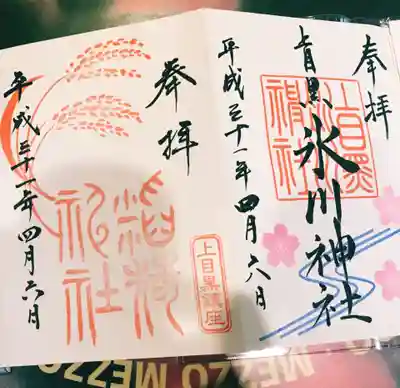 奉拝
上目黒氷川神社
平成三十一年四月六日
上目黒氷川神社
奉拝
稲荷神社
上目黒鎮座
平成三十一年四月六日
MEZZO MEZZO